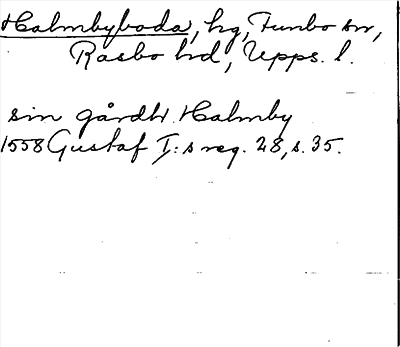 Halmbyboda, hg, Funbo sn,
Rasbo hd, Upps. l.
sin gårdh Halmby
1558 Gustaf I:s reg. 28, s. 35.